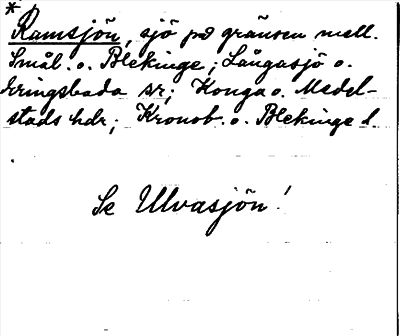 * Ramsjön, sjö på gränsen mell.
Smål. o. Blekinge; Långasjö o.
Eringsboda sr; Konga o. Medel-
stads hdr; Kronob. o. Blekinge l.
Se Ulvasjön!